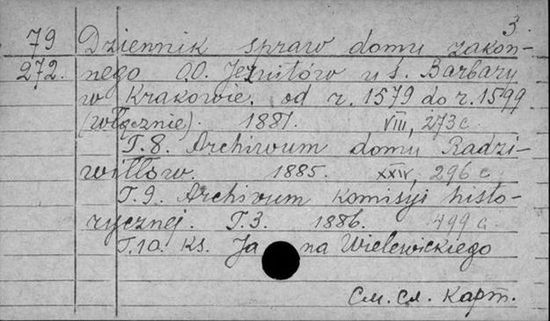 3.
79 Dziennik spraw domu zakon-
272. nego OO. Jezuitów u ś. Barbary
w Krakowie. od r. 1579 do r. 1599
(włącznie). 1881. VIII, 273 c.
T. 8. Archiwum domu Radzi-
wiłłów. 1885. XXIV, 296 c.
T. 9. Archivum Komisyi histo-
rycznej. T. 3. 1886. 499 c.
T. 10. Ks. Jana Wielewickiego
См. сл. карт.